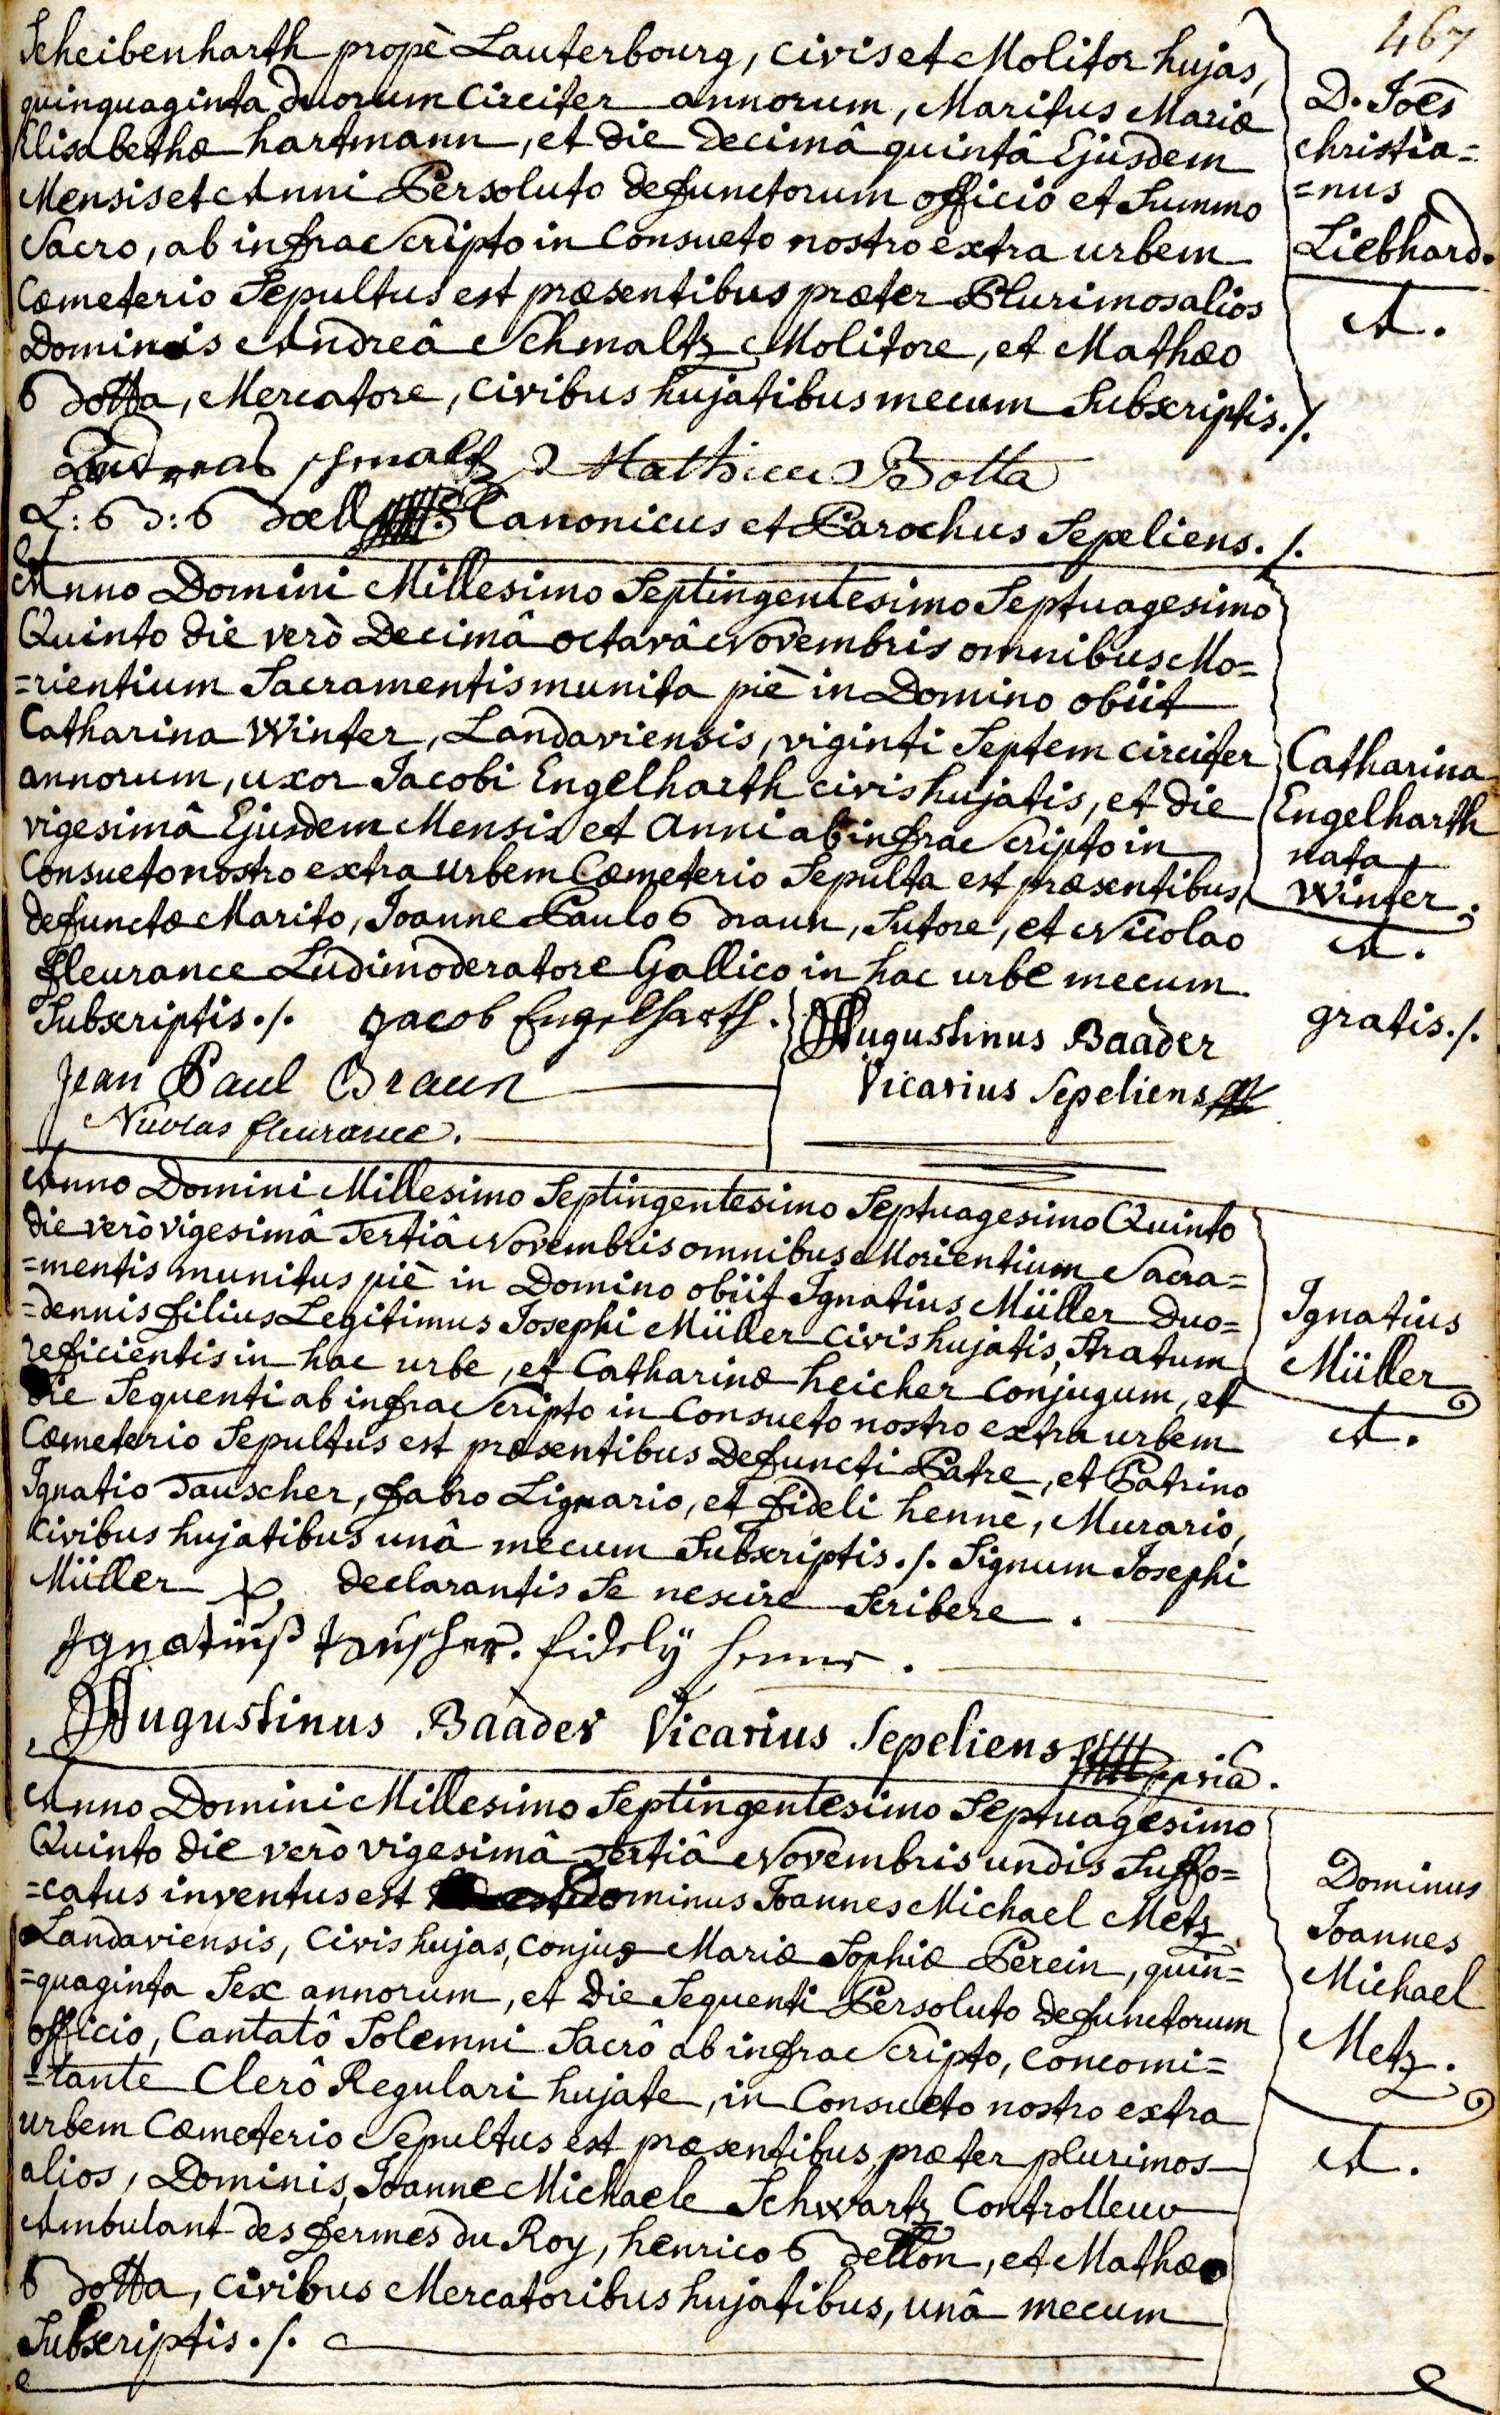 467
Scheibenharth propè Lauterbourg, civis et Molitor hujas,
quinquaginta duorum circiter annorum, Maritus Mariæ
Elisabethæ hartmann, et die decimâ quintâ Ejusdem
Mensis et Anni Persoluto defunctorum officio et Summo
Sacro, ab infra Scripto in Consueto nostro extra urbem
Cœmeterio Sepultus est præsentibus præter Plurimos alios
Dominis Andreâ Schmaltz Molitore, et Mathæo
Botta, Mercatore, civibus hujatibus mecum Subscriptis ./.
D. Joēs
christia=
=nus
Liebhard.
A.
Andreas schmaltz Mathieu Botta
Canonicus et Parochus Sepeliens ./.
Anno Domini Millesimo Septingentesimo Septuagesimo
Quinto die verò Decimâ octavâ Novembris omnibus Mo=
=rientium Sacramentis munita piè in Domino obiit
Catharina Winter, Landaviensis, viginti Septem circiter
annorum, uxor Jacobi Engelharth civis hujatis, et die
vigesimâ Ejusdem Mensis et anni ab infra Scripto in
Consueto nostro extra urbem Cœmeterio Sepulta est præsentibus,
defunctæ Marito, Joanne Paulo Braun, Sutore, et Nicolao
fleurance Ludimoderatore Gallico in hac urbe mecum
Subscriptis ./. Jacob Engelharth.
Jean Paul Braun
Nicolas fleurance.
Augustinus Baader
Vicarius Sepeliens
Catharina
Engelharth
nata
Winter.
A.
gratis ./.
Anno Domini Millesimo Septingentesimo Septuagesimo Quinto
die verò vigesimâ Tertiâ Novembris omnibus Morientium Sacra=
=mentis munitus piè in Domino obiit Ignatius Müller Duo=
=dennis filius Legitimus Josephi Müller civis hujatis, Stratum
reficientis in hac urbe, et Catharinæ heicher conjugum, et
die Sequenti ab infra Scripto in Consueto nostro extra urbem
Cœmeterio Sepultus est præsentibus Defuncti Patre, et Patrino
Ignatio Tauscher, fabro Lignario, et fideli hennè, Murario,
civibus hujatibus unâ mecum Subscriptis ./. Signum Josephi
Müller declarantis Se nescire Scribere .
Ignatius tauscher. fidely henne .
Augustinus Baader Vicarius Sepeliens
Ignatius
Müller
A.
Anno Domini Millesimo Septingentesimo Septuagesimo
Quinto die verò vigesimâ Tertiâ Novembris undis Suffo=
=catus inventus est Dominus Joannes Michael Metz
Landaviensis, Civis hujas, conjux Mariæ Sophiæ Perein, quin=
=quaginta Sex annorum, et die Sequenti Persoluto defunctorum
officio, Cantatô Solemni Sacrô ab infra Scripto, concomi=
=tante Clerô Regulari hujate, in Consueto nostro extra
urbem Cœmeterio Sepultus est præsentibus præter plurimos
alios, Dominis, Joanne Michaele Schwartz Controlleur
Ambulant des fermes du Roy, henrico Bellon, et Mathæo
Botta, civibus Mercatoribus hujatibus, unâ mecum
Subscriptis ./.
Dominus
Joannes
Michael
Metz.
A.